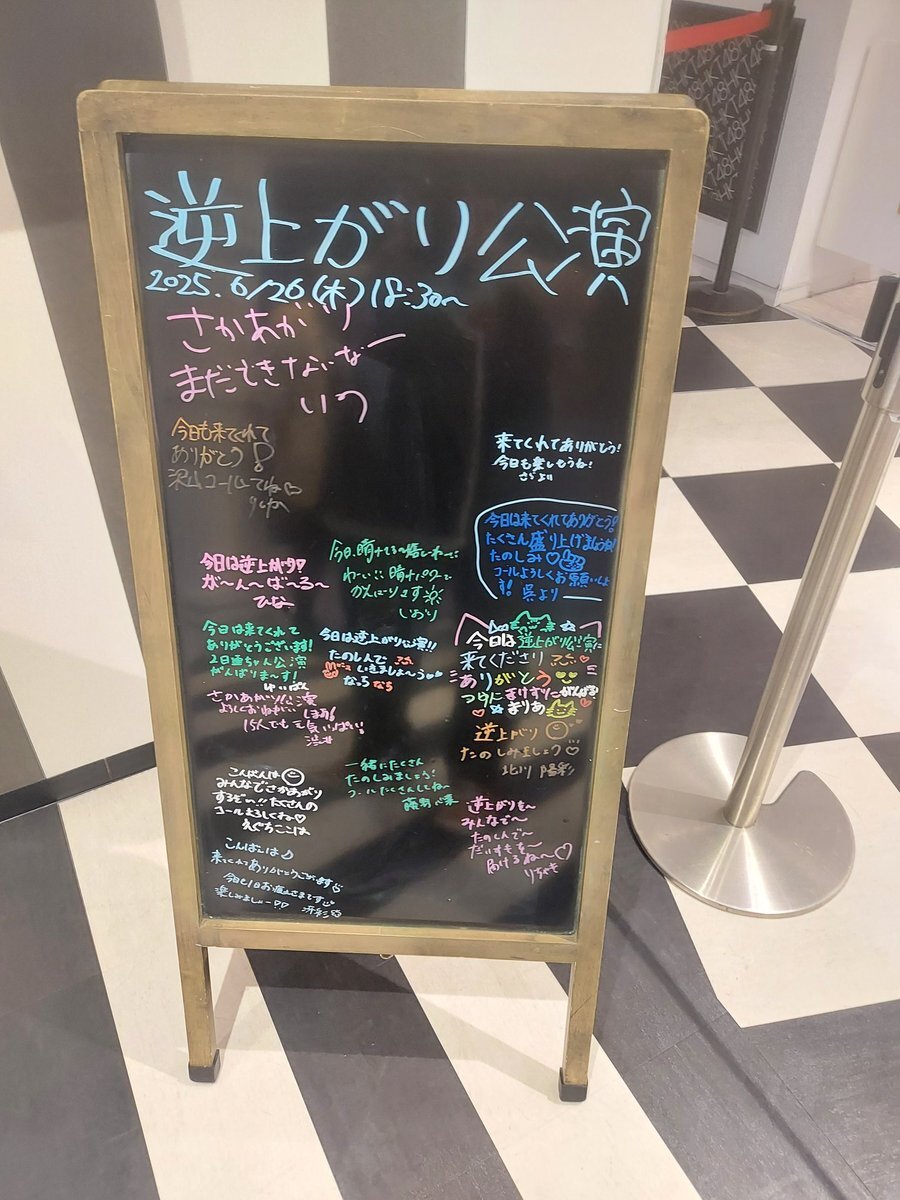 逆上がり公演
2025.6/26(木)18:30〜
さかあがり
まだできないなー
いつ
今日も来てくれて
ありがとう!
沢山コールしてね♡
来てくれてありがとう!
今日も楽しもうね!
さらより
今日は来てくれてありがとう!
たくさん盛り上げましょうね!
たのしみ♡
コールよろしくお願いしま
す! 呉より
今日は逆上がり♡
が〜ん〜ば〜る〜
ひな
今日、晴れてる〜嬉しいわー
わーい 晴れパワーで
がんばります
しおり
今日は来てくれて
ありがとうございます!
2日連ちゃん公演
がんばりま〜す!
ゆいぱん
今日は逆上がり公演!!
たのしんで
いきましょ〜う
なっち なち
今日は逆上がり公演に
来てくださり
ありがとう
まりあ
さかあがり公演
よろしくおねがいします!
15人でも元気いっぱい!
渋井
逆上がり
たのしみましょう♡
北川 陽彩
こんばんは
みんなでさかあがり
するぞい!! たくさんの
コールよろしくね♡
えぐちここは
一緒にたくさん
たのしみましょう!
コールたくさんしてね〜
藤野心葉
逆上がりを〜
みんなで〜
たのしんで〜
だいすきを〜
届けるね〜♡
りちゃも
こんばんは♪
来てくれてありがとうございます
今日も1日お疲れさまです
楽しみましょ〜♡♡ 冴彩
HKT48